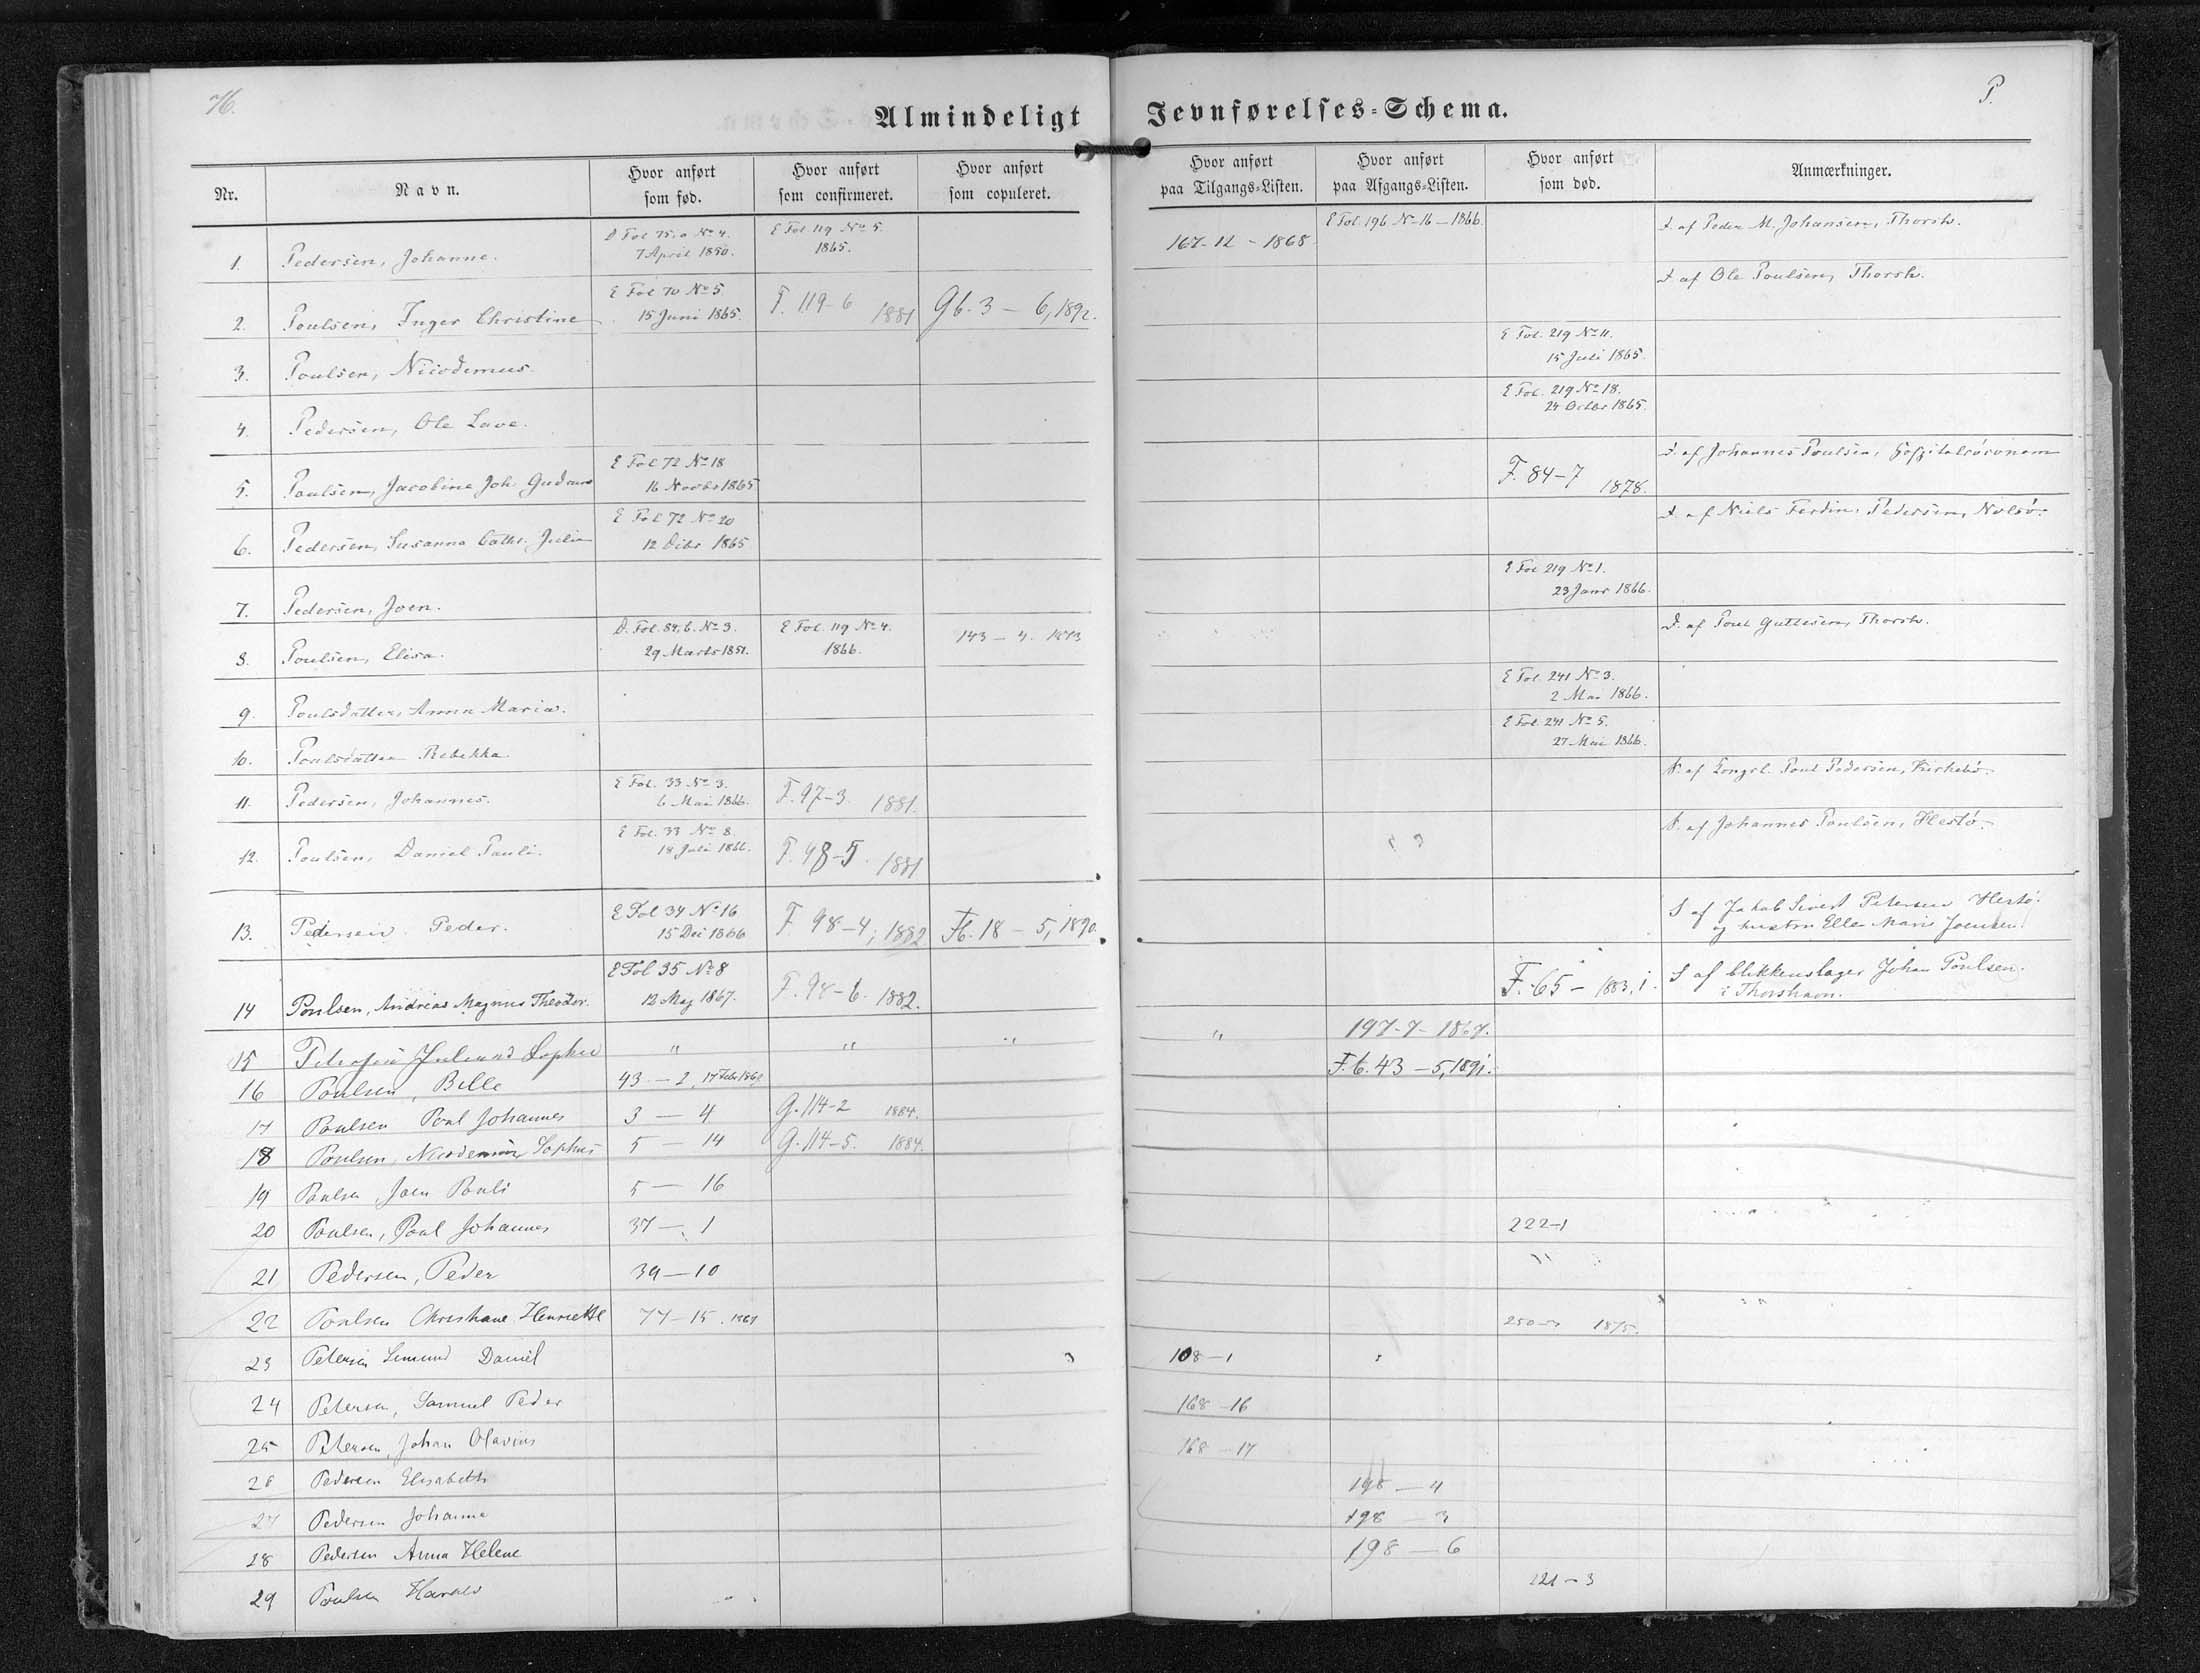 76.
P.
Almindeligt Jevnførelses-Schema.
Nr.
Navn.
Hvor anført som fød.
Hvor anført som confirmeret.
Hvor anført som copuleret.
Hvor anført paa Tilgangs-Listen.
Hvor anført paa Afgangs-Listen.
Hvor anført som død.
Anmærkninger.
1. Pedersen, Johanne. D Fol 75.a No 4. 7 April 1850. E Fol 119 No 5. 1865. 167-12-1868 E Fol. 196 No 16-1866. D. af Peder M. Johansen, Thorsh.
2. Poulsen, Inger Christine E Fol 70 No 5 15 Juni 1865. F. 119-6 1881 Gb. 3 - 6, 1892. D. af Ole Poulsen, Thorsh.
3. Poulsen, Nicodemus. E Fol. 219 No 11. 15 Juli 1865.
4. Pedersen, Ole Lave. E Fol. 219 No 18. 24 Octbr 1865.
5. Poulsen, Jacobine Joh. E Fol 72 No 18 16 Novbr 1865 F. 84-7 1878. D. af Johannes Poulsen,
6. Pedersen, Susanna Cathr. Julie E Fol 72 No 20 12 Decbr 1865 D. af Niels Ferdin. Pedersen, Nolsö.
7. Pedersen, Joen. E Fol 219 No 1. 23 Janr 1866.
8. Poulsen, Elisa. D. Fol. 84, b. No 3. 29 Marts 1851. E Fol. 119 No 4. 1866. 143 - 4. 1873 D. af Poul Guttesen, Thorsh.
9. Poulsdatter, Anna Maria. E Fol. 241 No 3. 2 Mai 1866.
10. Poulsdatter Rebekka. E Fol. 241 No 5. 27 Mai 1866.
11. Pedersen, Johannes. E Fol. 33 No 3. 6 Mai 1866. F. 97-3. 1881. S. af Poul Pedersen, Kirkebö.
12. Poulsen, Daniel Pauli. E Fol. 33 No 8. 18 Juli 1866. F. 98-5. 1881 S. af Johannes Poulsen, Hestö.
13. Pedersen Peder. E Fol 34 No 16 15 Dec 1866 F. 98-4; 1882 Fb. 18 - 5, 1890. S af Jakob Sivert Petersen Hestö. og hustru Elle Marie Joensen.
14 Poulsen, Andreas Magnus Theodor. E Fol 35 No 8 12 Maj 1867. F. 98-6. 1882. F. 65 - 1883, 1. S af blikkenslager Johan Poulsen. i Thorshavn.
15 Sophie " " " " 197-7-1867.
16 Poulsen, Bille 43 - 2, 17 Febr F.b. 43 - 5, 1891.
17 Poulsen Poul Johannes 3 - 4 G. 114-2 1884.
18 Poulsen, Nicodemus Sophus 5 - 14 G. 114-5. 1884.
19 Poulsen, Joen Pauli 5 - 16
20 Poulsen, Poul Johannes 37 - 1 222-1
21 Pedersen, Peder 39-10
22 Poulsen Christiane Henriette 77-15. 1867 1875.
23 Petersen Simund Daniel 108-1
24 Petersen, Samuel Peder 168-16
25 Petersen, Johan Olavius 168-17
26 Pedersen Elisabeth 198-4
27 Pedersen Johanne 198-3
28 Pedersen Anna Helene 198-6
29 Poulsen Harald 221-3